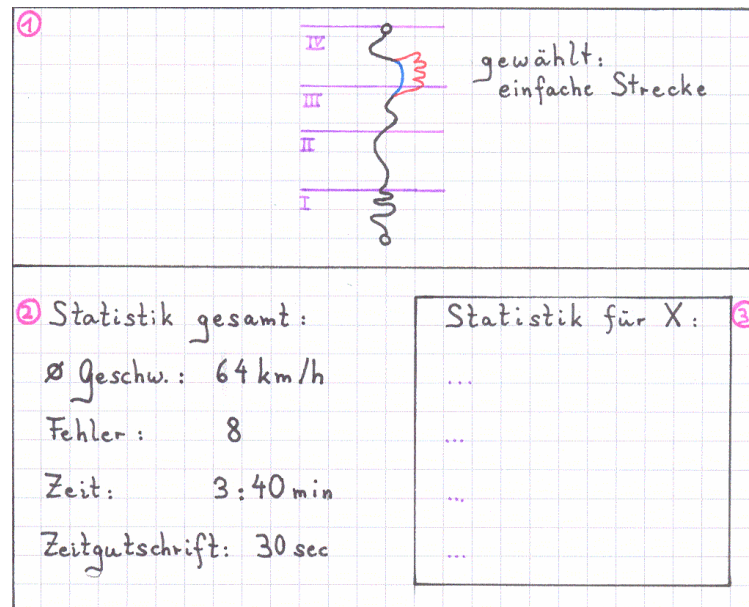 1
IV
gewählt:
einfache Strecke
III
II
I
2 Statistik gesamt:
Ø Geschw.: 64 km/h
Fehler: 8
Zeit: 3:40 min
Zeitgutschrift: 30 sec
Statistik für X: 3
...
...
...
...